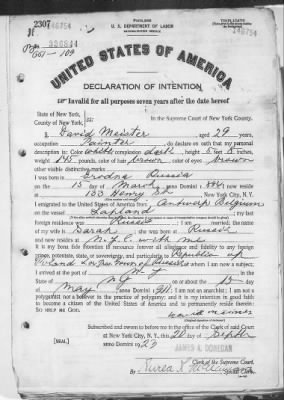 2307
TRIPLICATE
U. S. DEPARTMENT OF LABOR
NATURALIZATION SERVICE
UNITED STATES OF AMERICA
DECLARATION OF INTENTION
Invalid for all purposes seven years after the date hereof
State of New York,
County of New York, ss:
In the Supreme Court of New York County.
I, David Meister, aged 29 years,
occupation Painter, do declare on oath that my personal
description is: Color white, complexion dark, height 5 feet inches,
weight 145 pounds, color of hair brown, color of eyes brown
other visible distinctive marks
I was born in Grodna Russia
on the 15 day of March, anno Domini; I now reside
at 133 Henry St., New York City, N. Y.
I emigrated to the United States of America from Antwerp Belgium
on the vessel Lapland; my last
foreign residence was Russia; I am married; the name
of my wife is Sarah; she was born at Russia
and now resides at N.Y.C. with me
It is my bona fide intention to renounce forever all allegiance and fidelity to any foreign
prince, potentate, state, or sovereignty, and particularly to Republic of
Poland, of whom I am now a subject;
I arrived at the port of N.Y.
State of, on or about the 15 day
of May, anno Domini; I am not an anarchist; I am not a
polygamist nor a believer in the practice of polygamy; and it is my intention in good faith
to become a citizen of the United States of America and to permanently reside therein:
SO HELP ME GOD.
Subscribed and sworn to before me in the office of the Clerk of said Court
at New York City, N. Y., this 20 day of Septbr
[SEAL.] anno Domini 19
JAMES A. DONEGAN
Clerk of the Supreme Court.
By